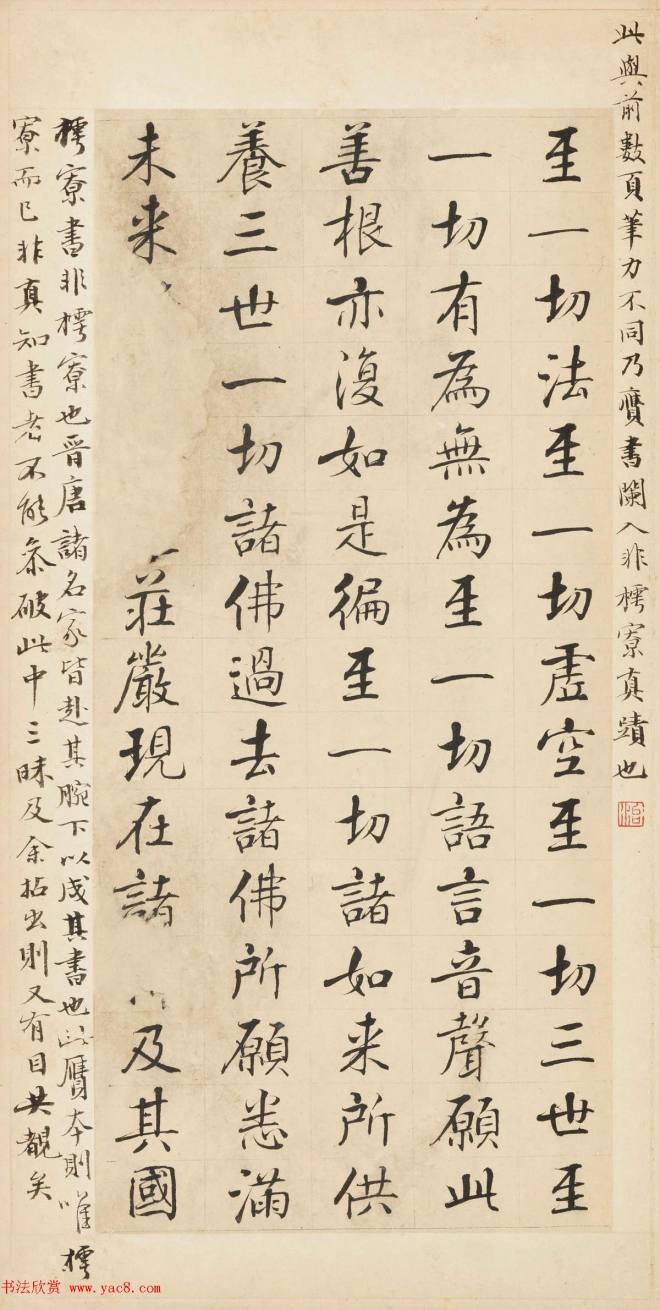 此與前數頁筆力不同乃贗書闌入非樗寮真蹟也
至一切法至一切虛空至一切三世至
一切有為無為至一切語言音聲願此
善根亦復如是徧至一切諸如来所供
養三世一切諸佛過去諸佛所願悉滿
未来莊嚴現在諸及其國
樗寮書非樗寮也晉唐諸名家皆赴其腕下以成其書也此贗本則唯樗
寮而已非真知書者不能叅破此中三昧及余拈出則又有目共覩矣
书法欣赏 www.yac8.com